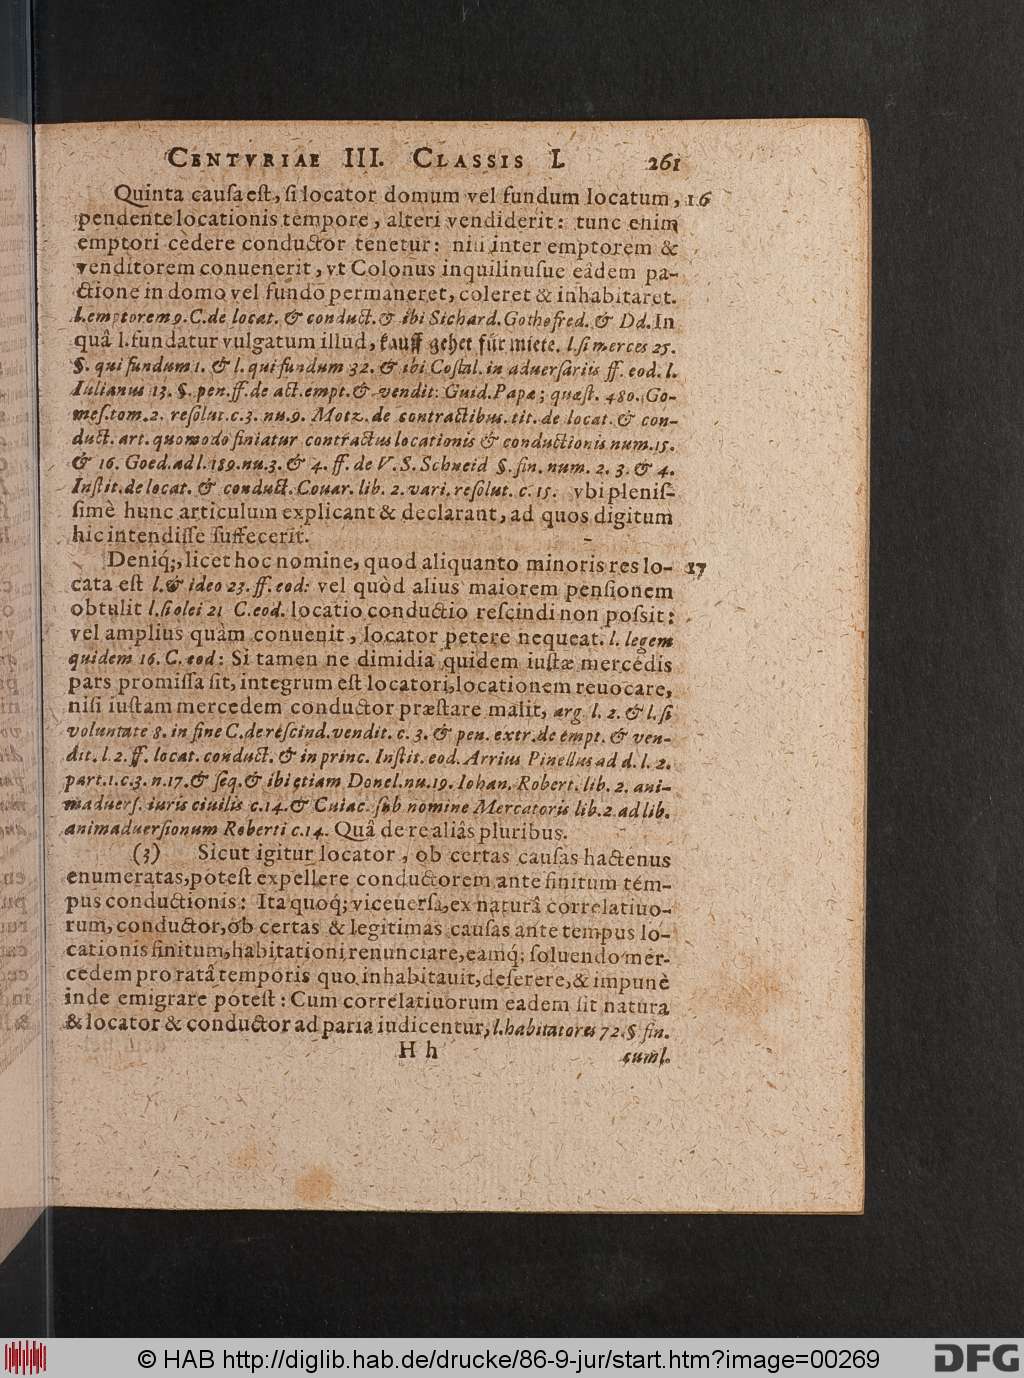 CENTVRIAE III. CLASSIS I. 261
Quinta cauſa eſt, ſi locator domum vel fundum locatum, 16
pendente locationis tempore, alteri vendiderit: tunc enim
emptori cèdere conductor tenetur: niſi inter emptorem &
venditorem conuenerit, vt Colonus inquilinuſue eâdem pa-
ctione in domo vel fundo permaneret, coleret & inhabitaret.
l. emptorem 9. C. de locat. & conduct. & ibi Sichard. Gothofred. & Dd. In
quâ l. fundatur vulgatum illud, kauff gehet für miete. l. ſi merces 25.
§. qui fundum 1. & l. qui fundum 32. & ibi Coſtal. in aduerſariis ff. eod. l.
Iulianus 13. §. pen. ff. de act. empt. & vendit: Guid. Papæ; quæſt. 480. Go-
meſ. tom. 2. reſolut. c. 3. nu. 9. Motz. de contractibus. tit. de locat. & con-
duct. art. quomodo finiatur contractus locationis & conductionis num. 15.
& 16. Goed. ad l. 189. nu. 3. & 4. ff. de V. S. Schneid §. fin. num. 2. 3. & 4.
Inſtit. de locat. & conduct. Couar. lib. 2. vari. reſolut. c. 15. vbi pleniſ-
ſimè hunc articulum explicant & declarant, ad quos digitum
hic intendiſſe ſuffecerit.
Deniq;, licet hoc nomine, quod aliquanto minoris res lo- 17
cata eſt l. & ideo 23. ff. eod: vel quòd alius maiorem penſionem
obtulit l. ſi olei 21 C. eod. locatio conductio reſcindi non poſsit:
vel amplius quàm conuenit, locator petere nequeat. l. legem
quidem 16. C. eod: Si tamen ne dimidia quidem iuſtæ mercedis
pars promiſſa ſit, integrum eſt locatori, locationem reuocare,
niſi iuſtam mercedem conductor præſtare malit, arg. l. 2. & l. ſi
voluntate 8. in fine C. de reſcind. vendit. c. 3. & pen. extr. de empt. & ven-
dit. l. 2. ff. locat. conduct. & in princ. Inſtit. eod. Arrius Pinellus ad d. l. 2.
part. 1. c. 3. n. 17. & ſeq. & ibi etiam Donel. nu. 19. Iohan. Robert. lib. 2. ani-
maduerſ. iuris ciuilis c. 14. & Cuiac. ſub nomine Mercatoris lib. 2. ad lib.
animaduerſionum Roberti c. 14. Quâ de re aliâs pluribus.
(3) Sicut igitur locator, ob certas cauſas hactenus
enumeratas, poteſt expellere conductorem ante finitum tém-
pus conductionis: Ita quoq; viceuerſa, ex naturâ correlatiuo-
rum, conductor, ob certas & legitimas cauſas ante tempus lo-
cationis finitum, habitationi renunciare, eamq; ſoluendo mer-
cedem pro ratâ temporis quo inhabitauit, deſerere, & impunè
inde emigrare poteſt: Cum correlatiuorum eadem ſit natura
& locator & conductor ad paria iudicentur, l. habitatores 72. § fin.
H h cuml.
© HAB http://diglib.hab.de/drucke/86-9-jur/start.htm?image=00269
DFG